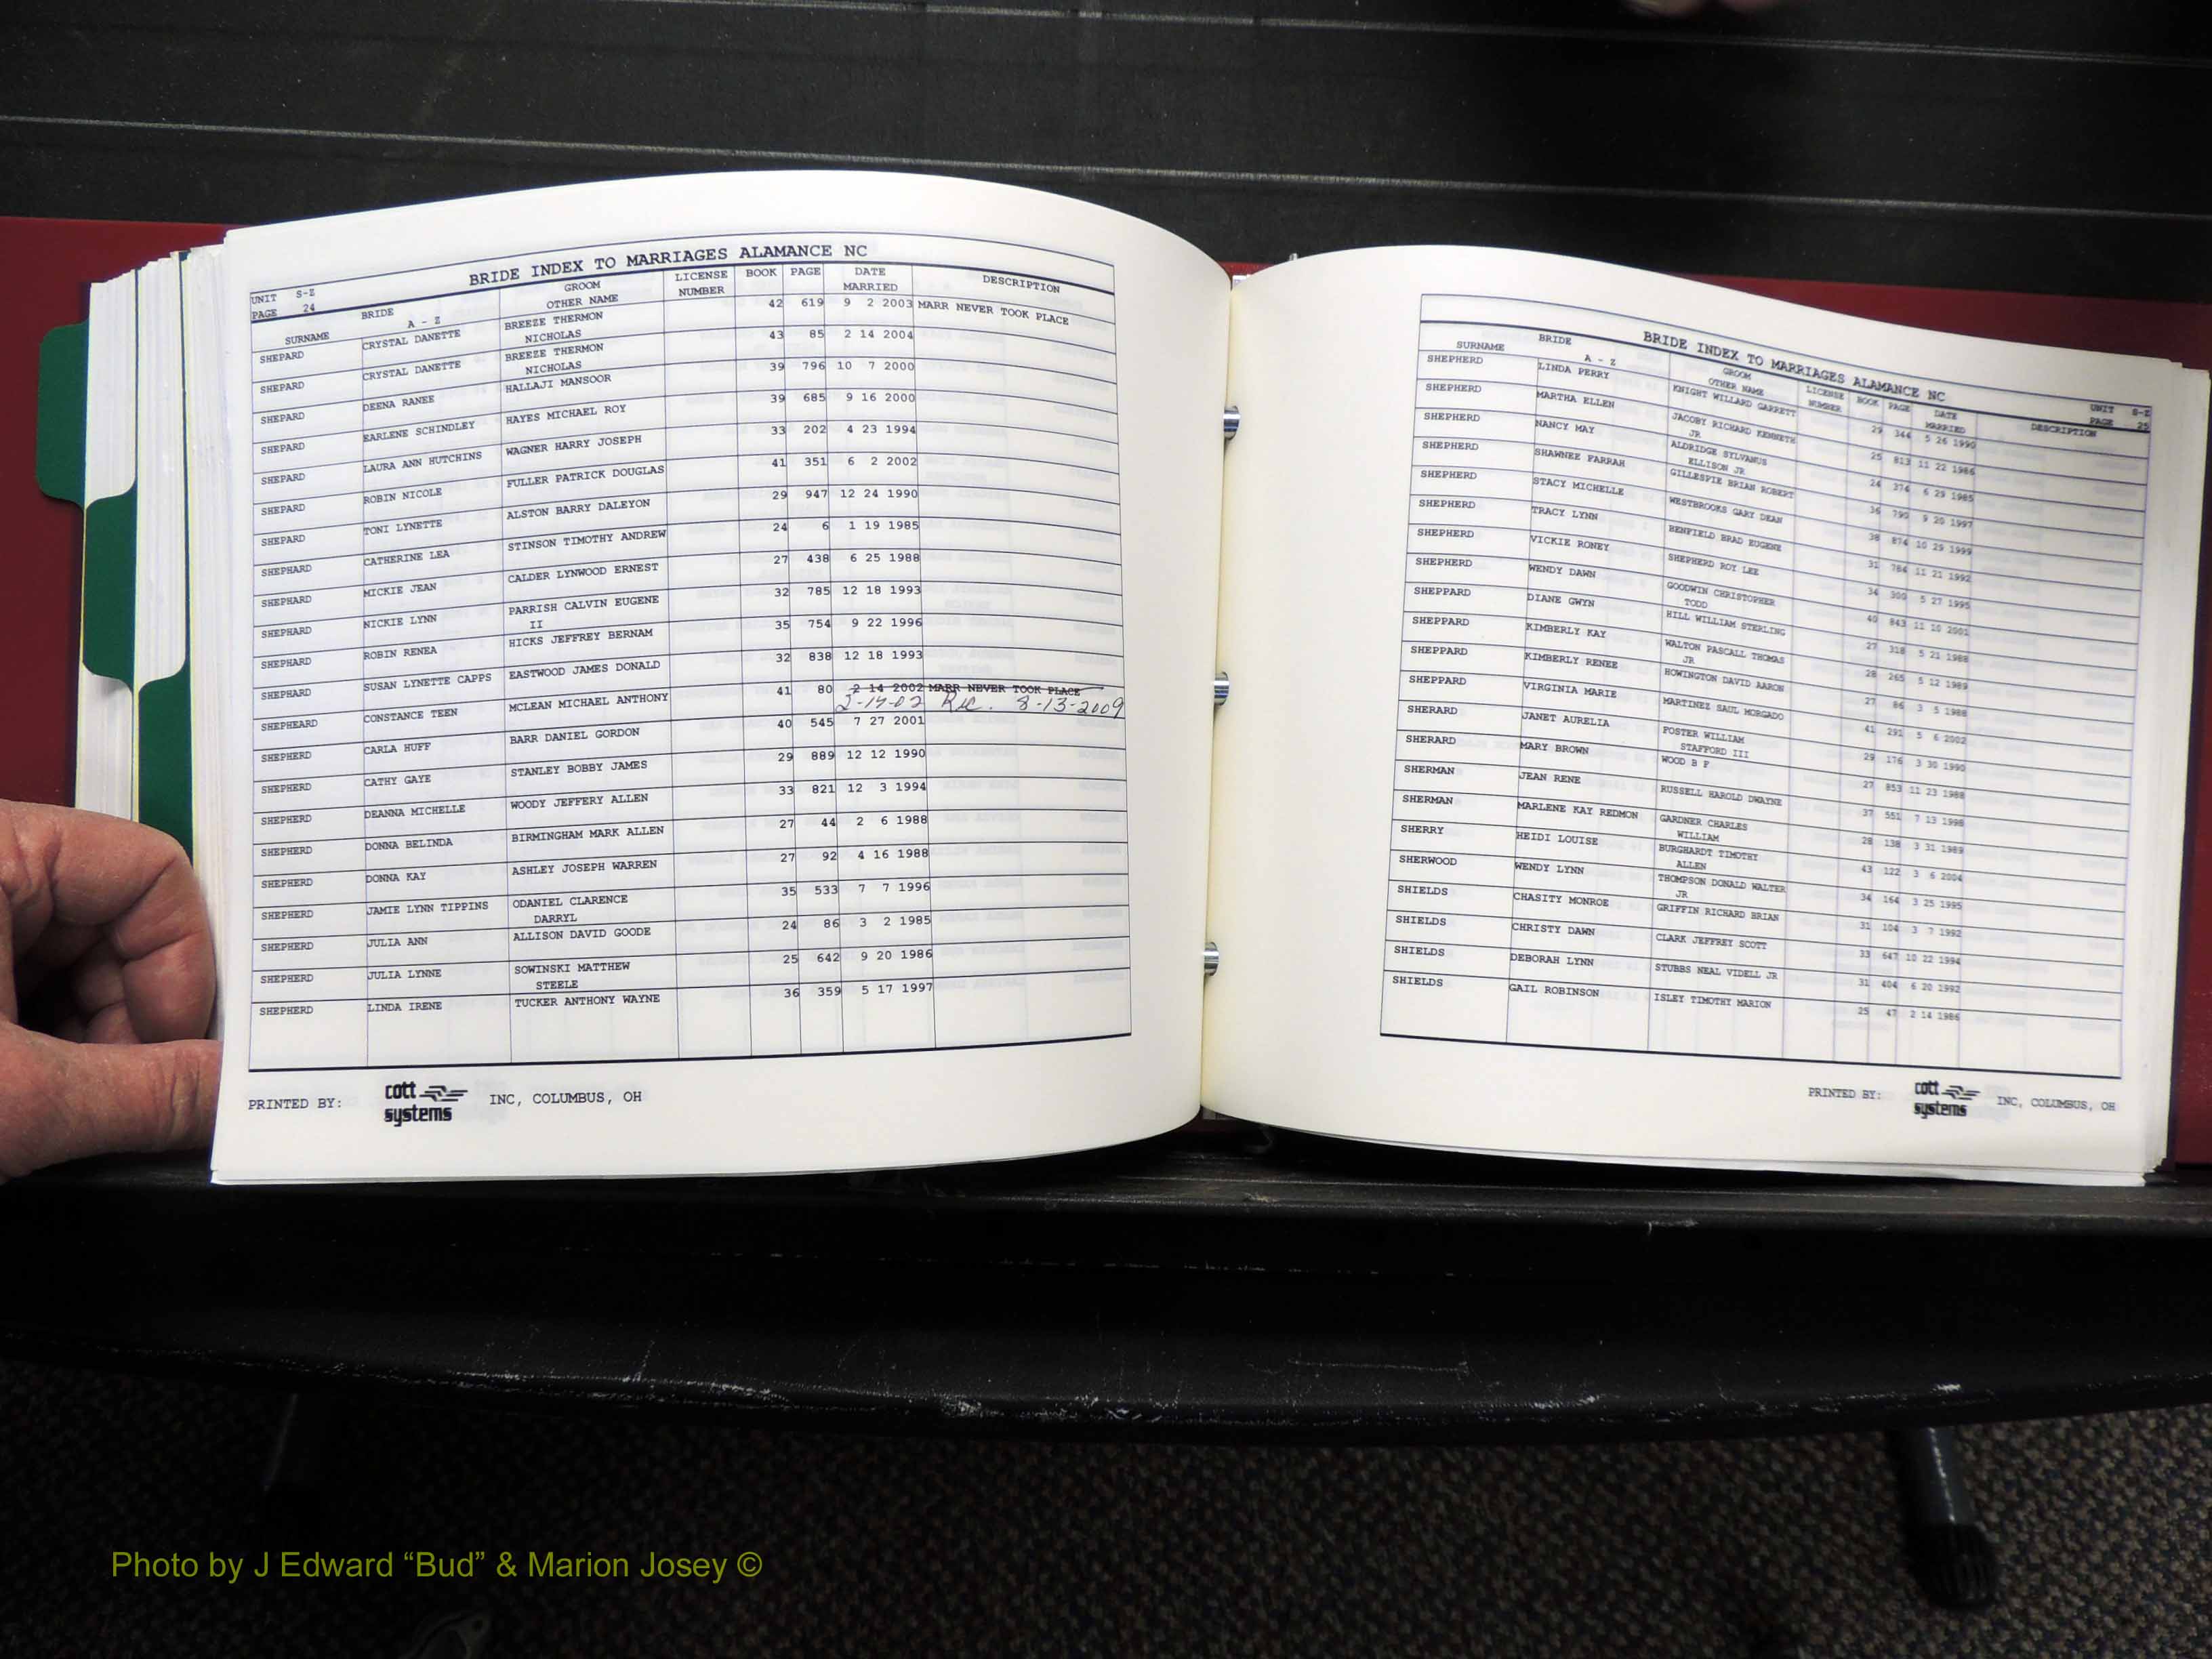 BRIDE INDEX TO MARRIAGES ALAMANCE NC
UNIT S-Z
PAGE 24
SURNAME BRIDE A - Z GROOM OTHER NAME LICENSE NUMBER BOOK PAGE DATE MARRIED DESCRIPTION
SHEPARD CRYSTAL DANETTE BREEZE THERMON NICHOLAS 42 619 9 2 2003 MARR NEVER TOOK PLACE
SHEPARD CRYSTAL DANETTE BREEZE THERMON NICHOLAS 43 85 2 14 2004
SHEPARD DEENA RANEE HALLAJI MANSOOR 39 796 10 7 2000
SHEPARD EARLENE SCHINDLEY HAYES MICHAEL ROY 39 685 9 16 2000
SHEPARD LAURA ANN HUTCHINS WAGNER HARRY JOSEPH 33 202 4 23 1994
SHEPARD ROBIN NICOLE FULLER PATRICK DOUGLAS 41 351 6 2 2002
SHEPARD TONI LYNETTE ALSTON BARRY DALEYON 29 947 12 24 1990
SHEPHARD CATHERINE LEA STINSON TIMOTHY ANDREW 24 6 1 19 1985
SHEPHARD MICKIE JEAN CALDER LYNWOOD ERNEST 27 438 6 25 1988
SHEPHARD NICKIE LYNN PARRISH CALVIN EUGENE II 32 785 12 18 1993
SHEPHARD ROBIN RENEA HICKS JEFFREY BERNAM 35 754 9 22 1996
SHEPHARD SUSAN LYNETTE CAPPS EASTWOOD JAMES DONALD 32 838 12 18 1993
SHEPHEARD CONSTANCE TEEN MCLEAN MICHAEL ANTHONY 41 80 2 14 2002 MARR NEVER TOOK PLACE
2-14-02 Rec. 8-13-2009
SHEPHERD CARLA HUFF BARR DANIEL GORDON 40 545 7 27 2001
SHEPHERD CATHY GAYE STANLEY BOBBY JAMES 29 889 12 12 1990
SHEPHERD DEANNA MICHELLE WOODY JEFFERY ALLEN 33 821 12 3 1994
SHEPHERD DONNA BELINDA BIRMINGHAM MARK ALLEN 27 44 2 6 1988
SHEPHERD DONNA KAY ASHLEY JOSEPH WARREN 27 92 4 16 1988
SHEPHERD JAMIE LYNN TIPPINS ODANIEL CLARENCE DARRYL 35 533 7 7 1996
SHEPHERD JULIA ANN ALLISON DAVID GOODE 24 86 3 2 1985
SHEPHERD JULIA LYNNE SOWINSKI MATTHEW STEELE 25 642 9 20 1986
SHEPHERD LINDA IRENE TUCKER ANTHONY WAYNE 36 359 5 17 1997
PRINTED BY: cott systems INC, COLUMBUS, OH
BRIDE INDEX TO MARRIAGES ALAMANCE NC
UNIT S-Z
PAGE 25
SURNAME BRIDE A - Z GROOM OTHER NAME LICENSE NUMBER BOOK PAGE DATE MARRIED DESCRIPTION
SHEPHERD LINDA PERRY KNIGHT WILLARD GARRETT 29 344 5 26 1990
SHEPHERD MARTHA ELLEN JACOBY RICHARD KENNETH JR 25 813 11 22 1986
SHEPHERD NANCY MAY ALDRIDGE SYLVANUS ELLISON JR 24 374 6 29 1985
SHEPHERD SHAWNEE FARRAH GILLESPIE BRIAN ROBERT 36 790 9 20 1997
SHEPHERD STACY MICHELLE WESTBROOKS GARY DEAN 38 874 10 29 1999
SHEPHERD TRACY LYNN BENFIELD BRAD EUGENE 31 784 11 21 1992
SHEPHERD VICKIE RONEY SHEPHERD ROY LEE 34 300 5 27 1995
SHEPHERD WENDY DAWN GOODWIN CHRISTOPHER TODD 40 843 11 10 2001
SHEPPARD DIANE GWYN HILL WILLIAM STERLING 27 318 5 21 1988
SHEPPARD KIMBERLY KAY WALTON PASCALL THOMAS JR 28 265 5 12 1989
SHEPPARD KIMBERLY RENEE HOWINGTON DAVID AARON 27 86 3 5 1988
SHEPPARD VIRGINIA MARIE MARTINEZ SAUL MORGADO 41 291 5 6 2002
SHERARD JANET AURELIA FOSTER WILLIAM STAFFORD III 29 176 3 30 1990
SHERARD MARY BROWN WOOD B F 27 853 11 23 1988
SHERMAN JEAN RENE RUSSELL HAROLD DWAYNE 37 551 7 13 1998
SHERMAN MARLENE KAY REDMON GARDNER CHARLES WILLIAM 28 138 3 31 1989
SHERRY HEIDI LOUISE BURGHARDT TIMOTHY ALLEN 43 122 3 6 2004
SHERWOOD WENDY LYNN THOMPSON DONALD WALTER JR 34 164 3 25 1995
SHIELDS CHASITY MONROE GRIFFIN RICHARD BRIAN 31 104 3 7 1992
SHIELDS CHRISTY DAWN CLARK JEFFREY SCOTT 33 647 10 22 1994
SHIELDS DEBORAH LYNN STUBBS NEAL VIDELL JR 31 404 6 20 1992
SHIELDS GAIL ROBINSON ISLEY TIMOTHY MARION 25 47 2 14 1986
PRINTED BY: cott systems INC, COLUMBUS, OH
Photo by J Edward “Bud” & Marion Josey ©